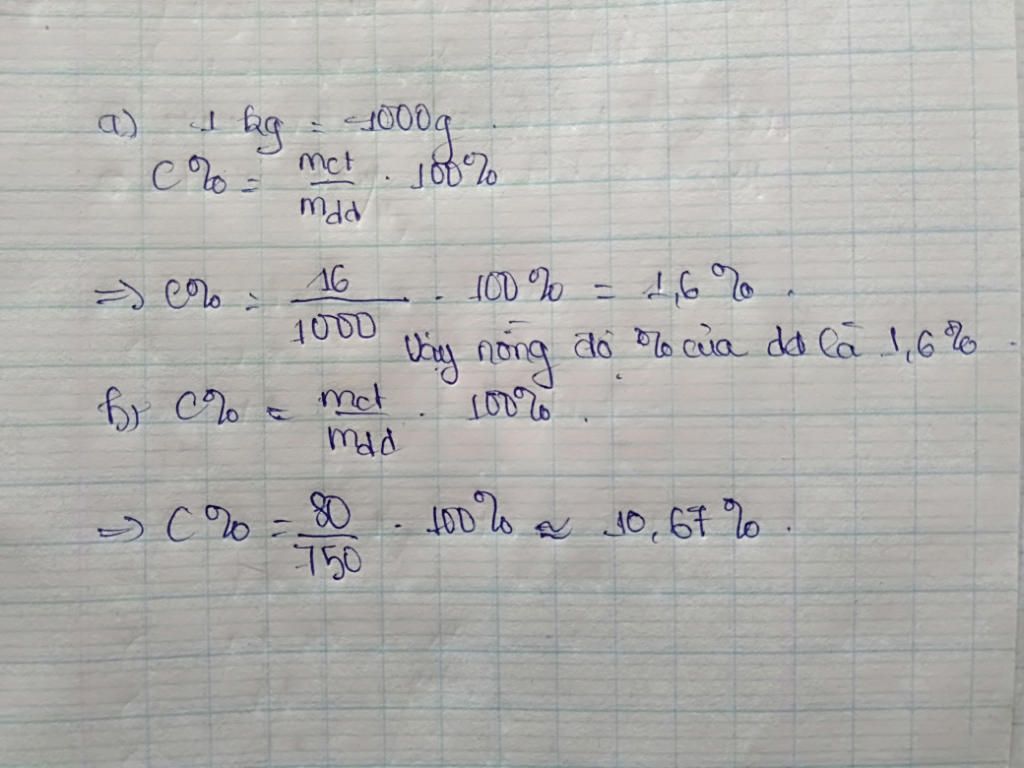 a) 1 kg = 1000g.
C% = mct/mdd . 100%
=> C% = 16/1000 . 100% = 1,6%.
Vậy nồng độ % của dd là 1,6%.
b) C% = mct/mdd . 100%.
=> C% = 80/750 . 100% ≈ 10,67%.